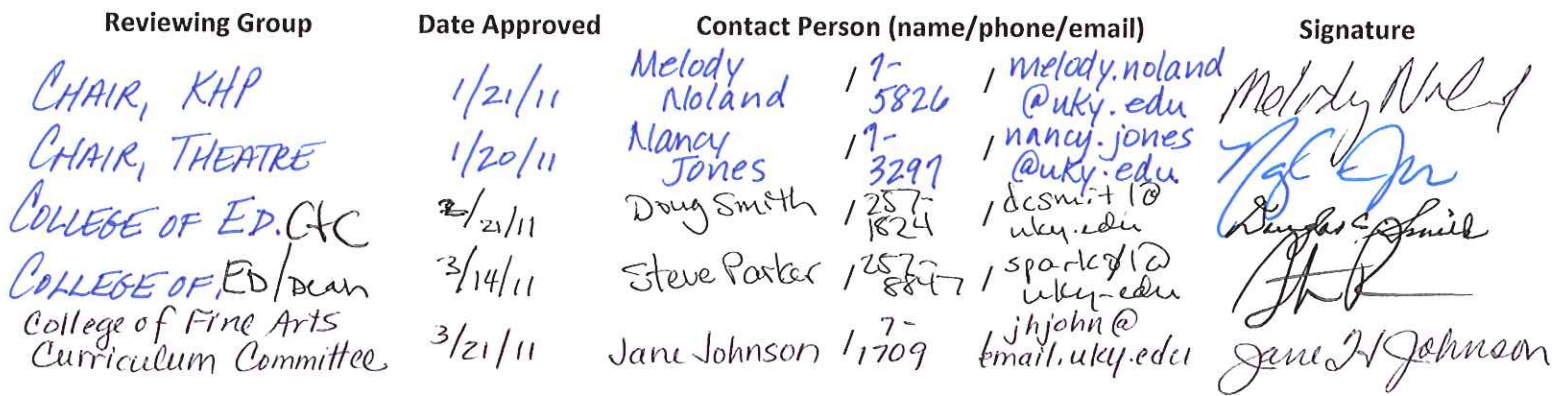 Reviewing Group Date Approved Contact Person (name/phone/email) Signature
CHAIR, KHP 1/21/11 Melody Noland / 7-5826 / melody.noland@uky.edu Melody Noland
CHAIR, THEATRE 1/20/11 Nancy Jones / 7-3297 / nancy.jones@uky.edu
COLLEGE OF ED. C+C /21/11 Doug Smith / 257-1824 / dcsmit1@uky.edu Douglas C. Smith
COLLEGE OF ED/Dean 3/14/11 Steve Parker / 257-8847 / uky.edu
College of Fine Arts Curriculum Committee 3/21/11 Jane Johnson / 7-1709 jhjohn@email.uky.edu Jane H Johnson